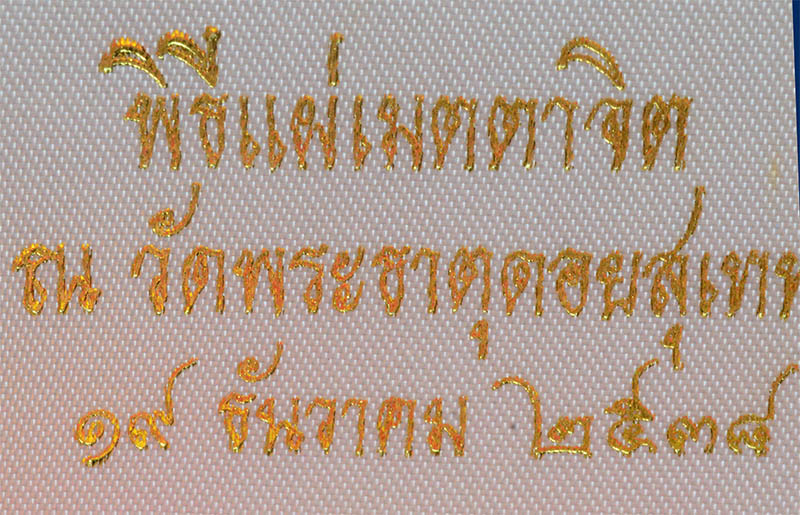 พิธีแผ่เมตตาจิต
ณ วัดพระธาตุดอยสุเทพ
๑๙ ธันวาคม ๒๕๓๘